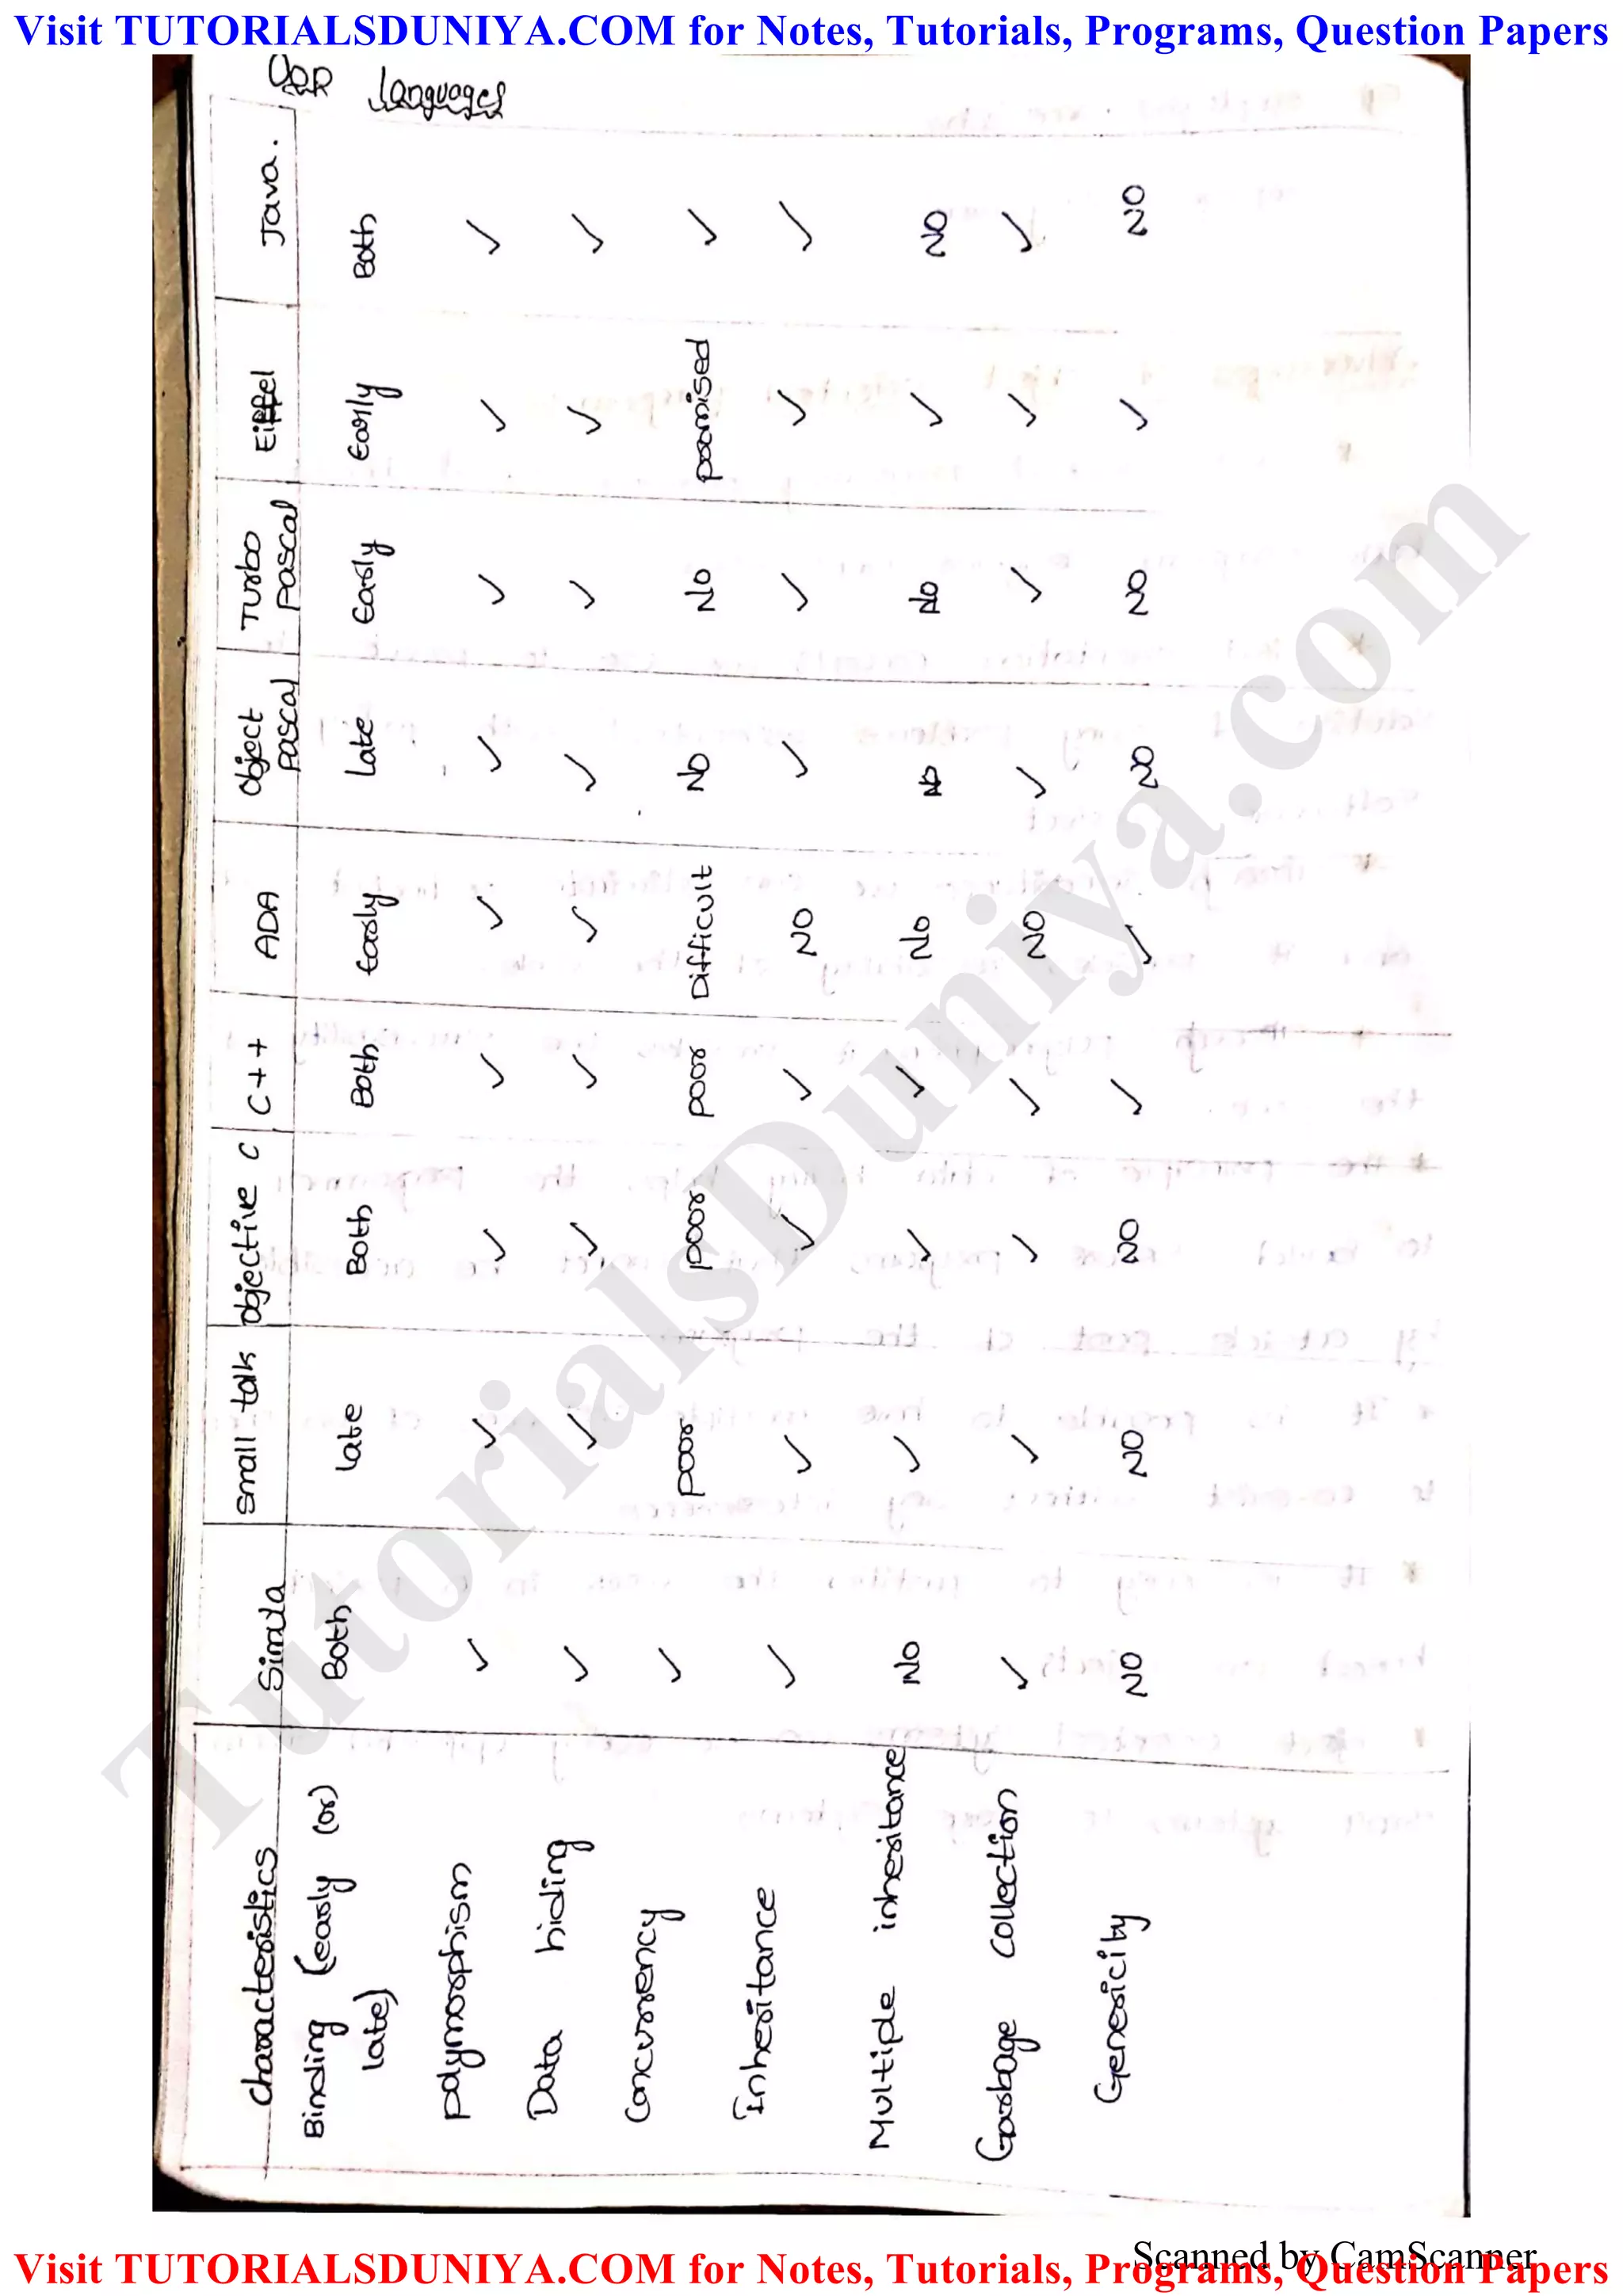 Visit TUTORIALSDUNIYA.COM for Notes, Tutorials, Programs, Question Papers
OOP languages
characteristics | Simula | small talk | objective C | C++ | ADA | object pascal | Turbo pascal | Eiffel | Java.
Binding (early (or) late) | Both | late | Both | Both | Early | late | Early | Early | Both
polymorphism | ✓ | ✓ | ✓ | ✓ | ✓ | ✓ | ✓ | ✓ | ✓
Data hiding | ✓ | ✓ | ✓ | ✓ | ✓ | ✓ | ✓ | ✓ | ✓
Concurrency | ✓ | poor | poor | poor | Difficult | No | No | promised | ✓
Inheritance | ✓ | ✓ | ✓ | ✓ | NO | ✓ | ✓ | ✓ | ✓
Multiple inheritance | No | ✓ | ✓ | ✓ | No | No | No | ✓ | NO
Garbage collection | ✓ | ✓ | ✓ | ✓ | NO | ✓ | ✓ | ✓ | ✓
Genericity | NO | NO | NO | ✓ | ✓ | NO | NO | ✓ | NO
TutorialsDuniya.com
Scanned by CamScanner
Visit TUTORIALSDUNIYA.COM for Notes, Tutorials, Programs, Question Papers